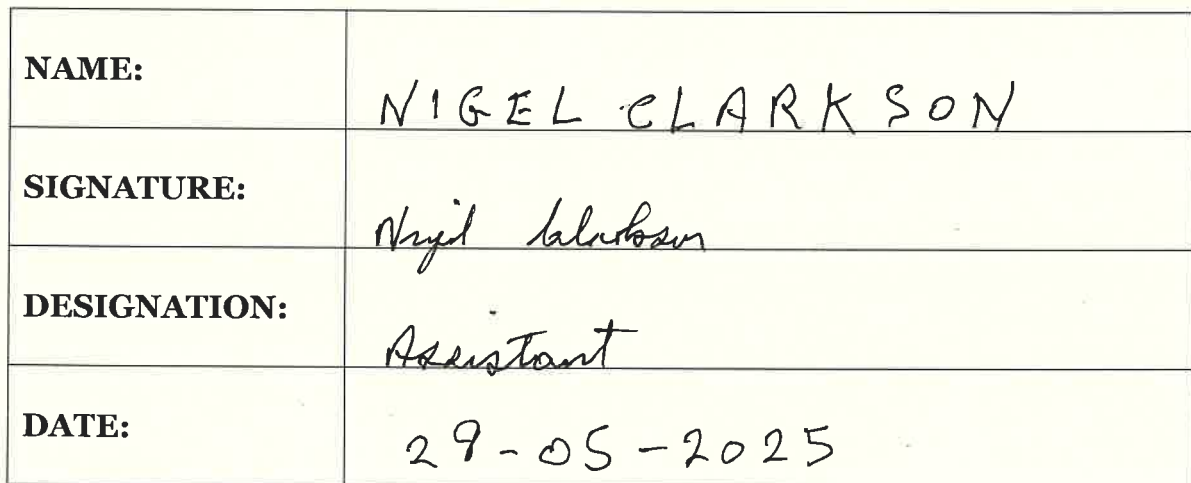 NAME: NIGEL CLARKSON
SIGNATURE: Nigel Clarkson
DESIGNATION: Assistant
DATE: 29-05-2025